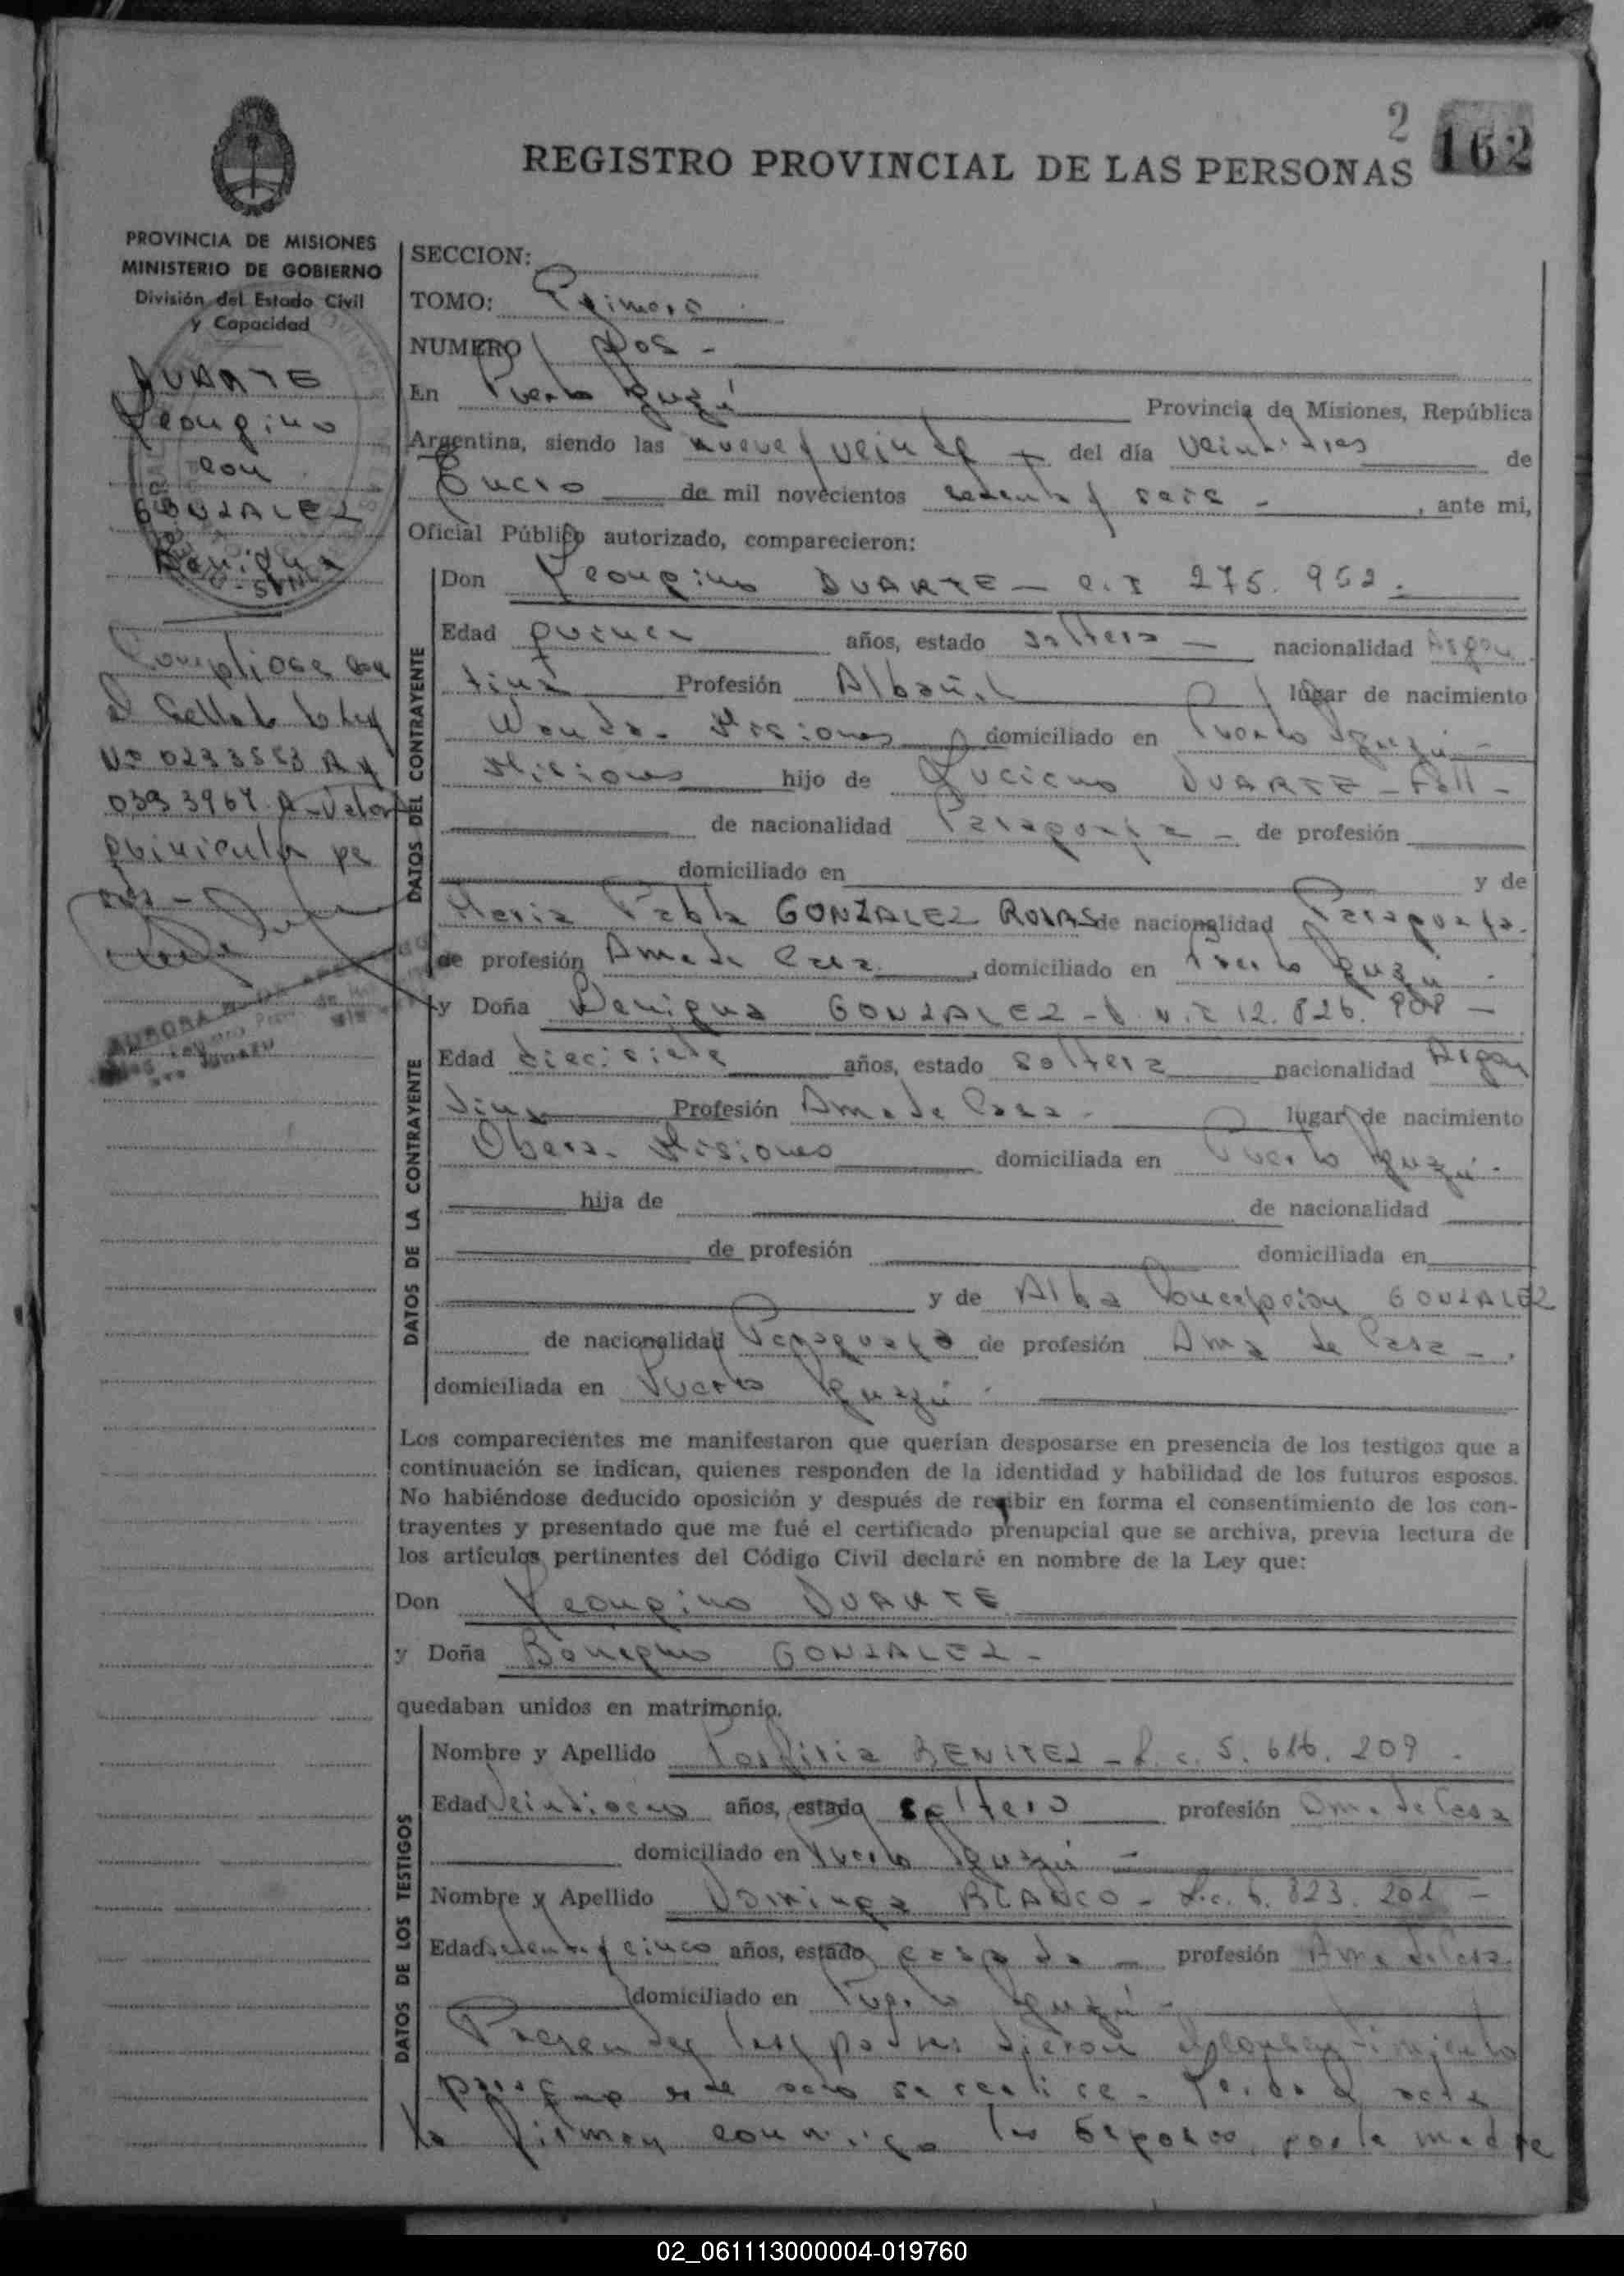 2 162
REGISTRO PROVINCIAL DE LAS PERSONAS
PROVINCIA DE MISIONES
MINISTERIO DE GOBIERNO
División del Estado Civil
y Capacidad
DUARTE
Leongino
con
GONZALEZ
Benigna
Compliose con
el Sellado
No 0233553 A y
0393964 A - Valor
SECCION:
TOMO: Primero
NUMERO Dos -
En Puerto Iguazú Provincia de Misiones, República
Argentina, siendo las nueve y veinte del día veintitres de
Enero de mil novecientos setenta y seis - , ante mi,
Oficial Público autorizado, comparecieron:
DATOS DEL CONTRAYENTE
Don Leongino DUARTE - C.I 275.952.
Edad años, estado soltero - nacionalidad Argen
tina Profesión Albañil lugar de nacimiento
Wanda - Misiones domiciliado en Puerto Iguazú -
Misiones hijo de Luciano DUARTE - Fall -
de nacionalidad Paraguaya - de profesión
domiciliado en y de
Maria Pabla GONZALEZ ROJAS de nacionalidad Paraguaya.
de profesión Ama de Casa , domiciliado en Puerto Iguazú -
y Doña Benigna GONZALEZ - D.N.I 12.826.908 -
DATOS DE LA CONTRAYENTE
Edad diecisiete años, estado soltera nacionalidad Argen
tina Profesión Ama de Casa - lugar de nacimiento
Obera - Misiones domiciliada en Puerto Iguazú -
hija de de nacionalidad
de profesión domiciliada en
y de Alba Concepcion GONZALEZ
de nacionalidad Paraguaya de profesión Ama de Casa -
domiciliada en Puerto Iguazú -
Los comparecientes me manifestaron que querían desposarse en presencia de los testigos que a
continuación se indican, quienes responden de la identidad y habilidad de los futuros esposos.
No habiéndose deducido oposición y después de recibir en forma el consentimiento de los con-
trayentes y presentado que me fué el certificado prenupcial que se archiva, previa lectura de
los artículos pertinentes del Código Civil declaré en nombre de la Ley que:
Don Leongino DUARTE
y Doña Benigna GONZALEZ -
quedaban unidos en matrimonio.
DATOS DE LOS TESTIGOS
Nombre y Apellido Porfiria BENITEZ - L.c. 5.616.209 -
Edad veintiocho años, estado soltero profesión Ama de Casa
domiciliado en Puerto Iguazú -
Nombre y Apellido Dominga BLANCO - L.c. 6.823.201 -
Edad años, estado casada - profesión Ama de Casa
domiciliado en Puerto Iguazú -
Presentes los padres dieron el consentimiento
para que este acto se realice - Leida el acta
la firman conmigo los esposos, por la madre
02_061113000004-019760